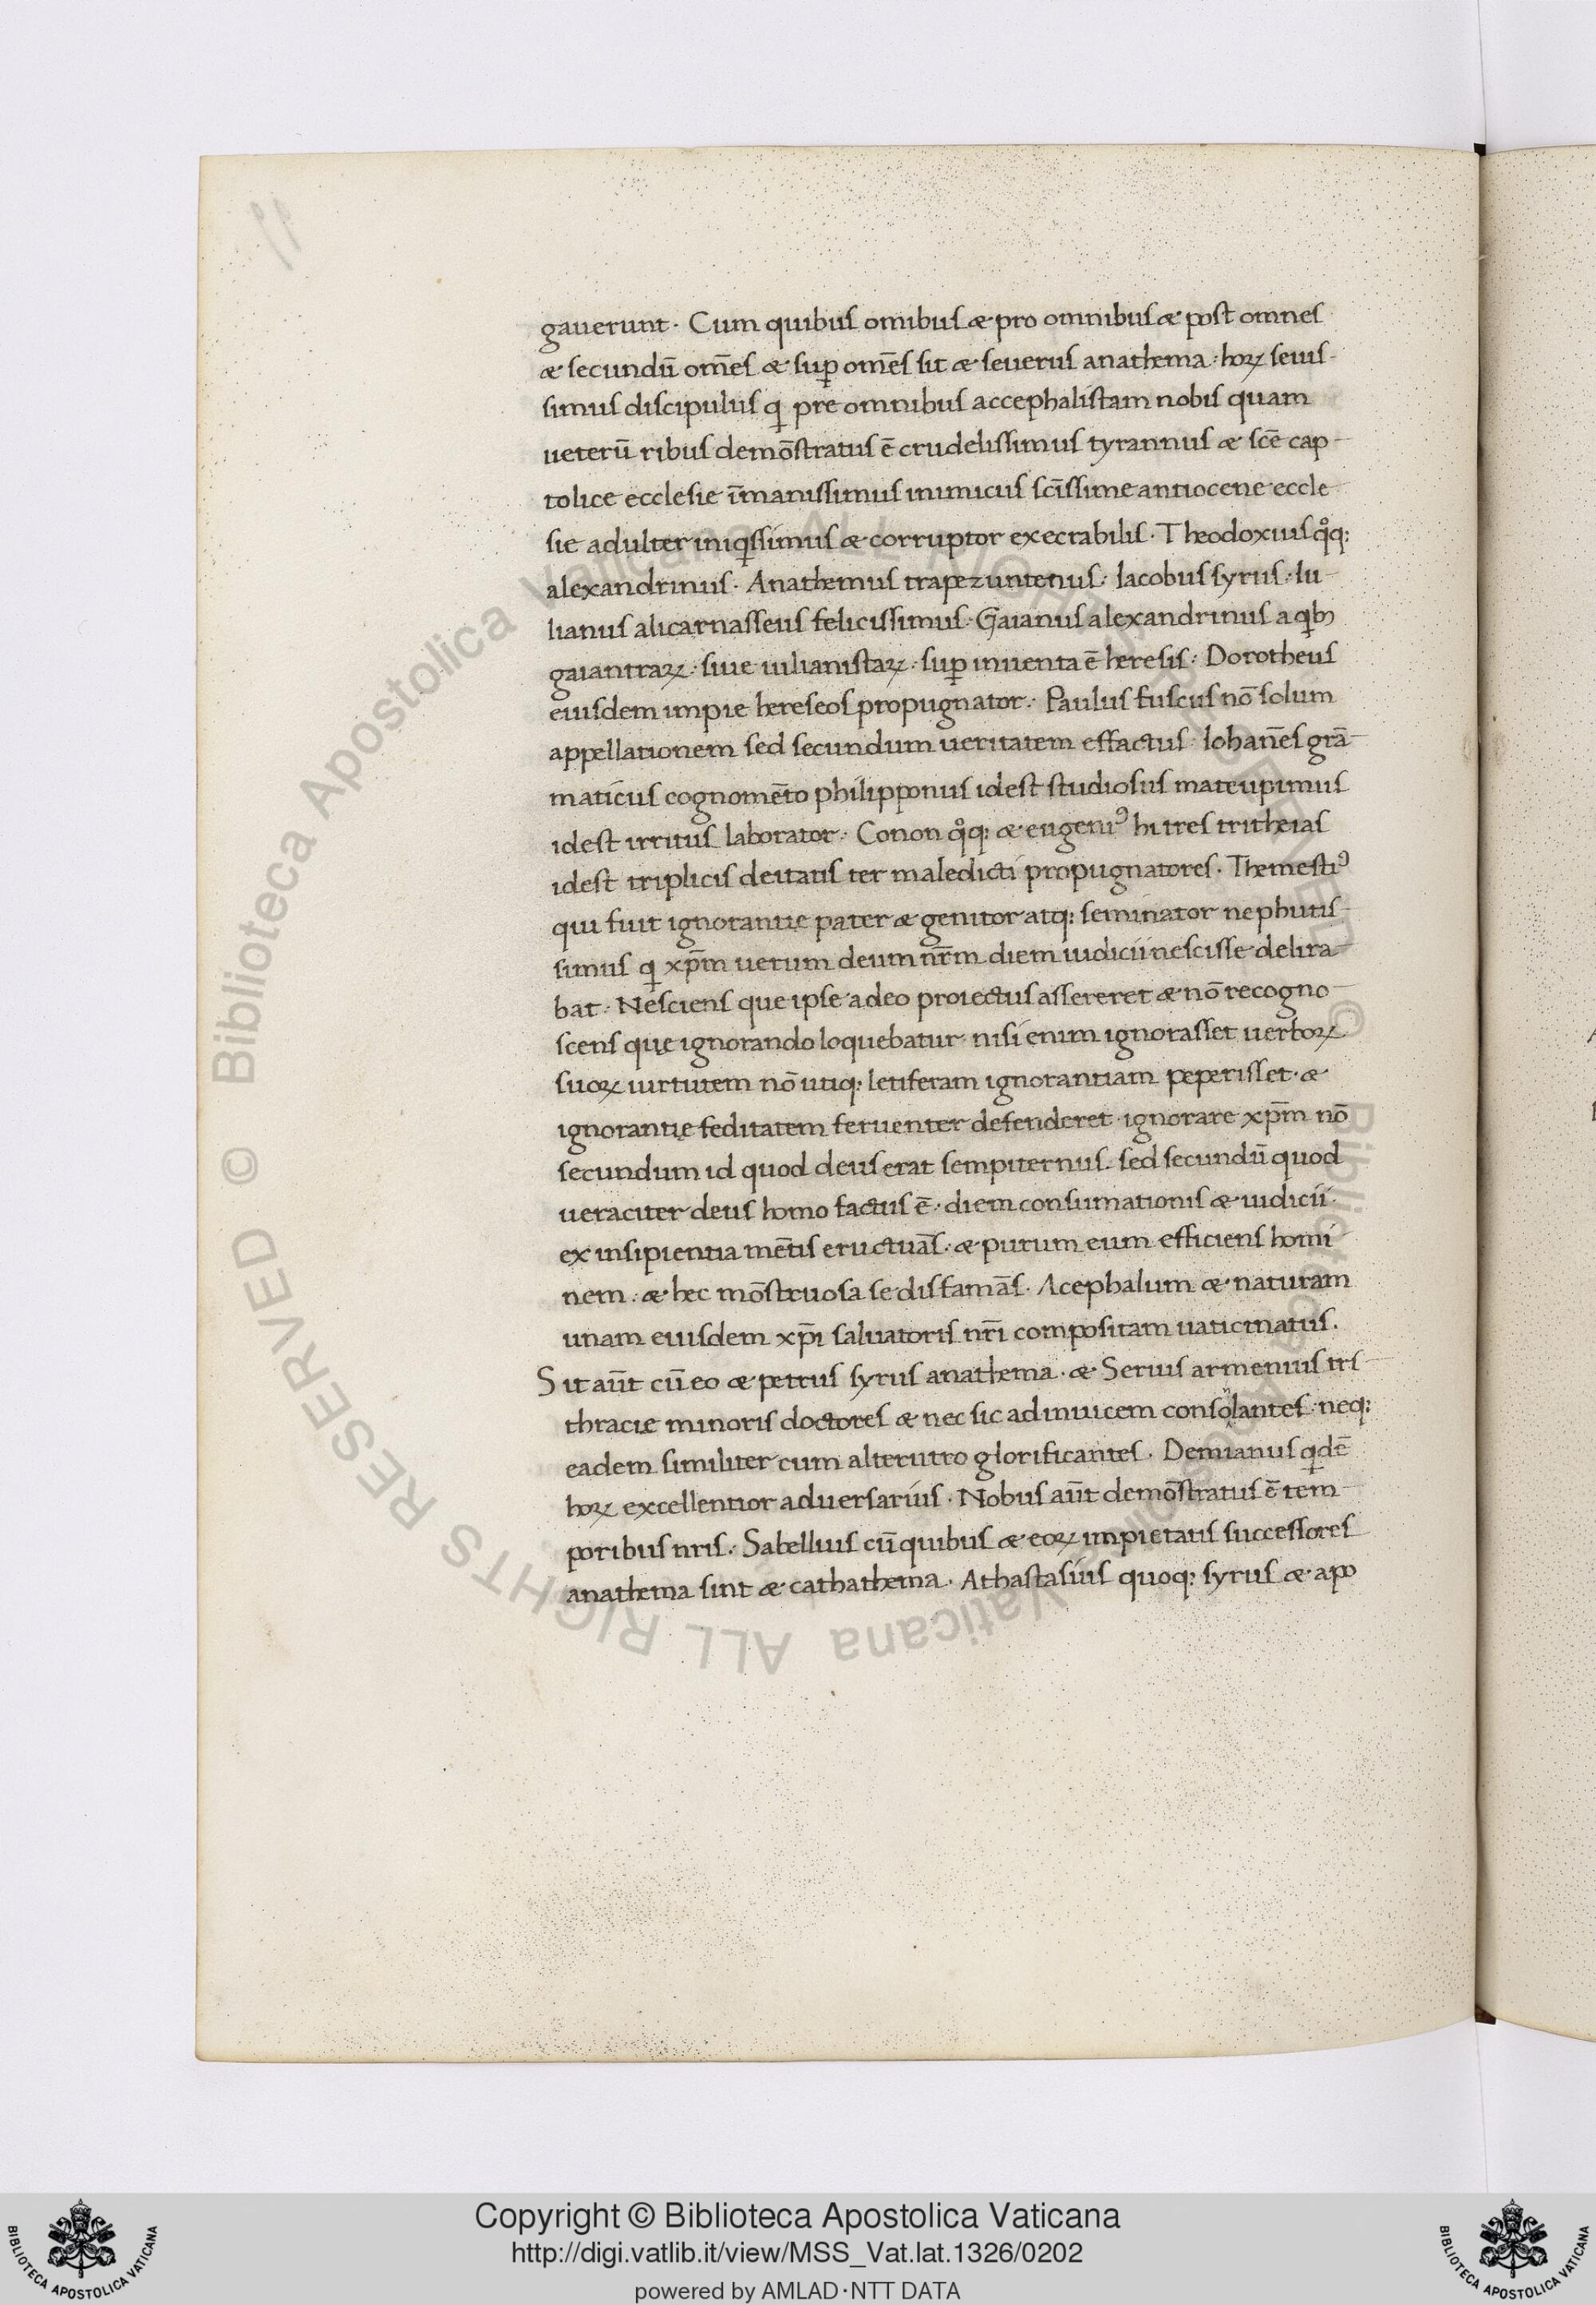 gauerunt. Cum quibus omibus & pro omnibus & post omnes
& secundū om̄es & suꝑ om̄es sit & seuerus anathema: hoꝝ seuis-
simus discipulus q̣ pre omnibus accephalistam nobis quam
ueterū ribus demōstratus ē crudelissimus tyrannus & sc̄e cap-
tolice ecclesie īmanissimus inimicus sc̄issime antiocene eccle
sie adulter iniq̣ssimus & corruptor execrabilis. Theodoxius qͦq:
alexandrinus. Anathemus trapezuntenus: Iacobus syrus: Iu-
lianus alicarnasseus felicissimus: Gaianus alexandrinus a qib;
gaiantraꝝ: siue iulianistaꝝ: suꝑ inuenta ē heresis: Dorotheus
eiusdem impie hereseos propugnator: Paulus fuscus nō solum
appellationem sed secundum ueritatem effactus: Iohan̄es grā-
maticus cognomēto philipponus idest studiosus mateupimus
idest irritus laborator: Conon qͦq: & eugeniꝰ hi tres tritheias
idest triplicis deitatis ter maledicti propugnatores. Themestiꝰ
qui fuit ignorantie pater & genitor atq: seminator nephutis-
simus q̣ xp̄m uerum deum nr̄m diem iudicii nescisse delira-
bat: Nesciens que ipse adeo proiectus assereret & nō recogno-
scens que ignorando loquebatur nisi enim ignorasset uerboꝝ
suoꝝ uirtutem nō utiq: letiferam ignorantiam peperisset. &
ignorantie feditatem feruenter defenderet ignorare xp̄m nō
secundum id quod deus erat sempiternus. sed secundū quod
ueraciter deus homo factus ē: diem consumationis & iudicii
ex insipientia mētis eructuās: & purum eum efficiens homi
nem: & hec mōstruosa se disfamās. Acephalum & naturam
unam eiusdem xp̄i saluatoris nr̄i compositam uaticinatus.
Sit aūt cū eo & petrus syrus anathema. & Serius armenius trs-
thracie minoris doctores & nec sic ad inuicem consolantes: neq:
eadem similiter cum alterutro glorificantes. Demianus qidē
hoꝝ excellentior aduersarius. Nobus aūt demōstratus ē tem-
poribus nris: Sabellius cū quibus & eoꝝ impietatis successores
anathema sint & cathathema. Athastasius quoq: syrus & apo
Copyright © Biblioteca Apostolica Vaticana
http://digi.vatlib.it/view/MSS_Vat.lat.1326/0202
powered by AMLAD·NTT DATA
© Biblioteca Apostolica Vaticana ALL RIGHTS RESERVED
© Biblioteca Apostolica Vaticana ALL RIGHTS RESERVED
BIBLIOTECA APOSTOLICA VATICANA
BIBLIOTECA APOSTOLICA VATICANA